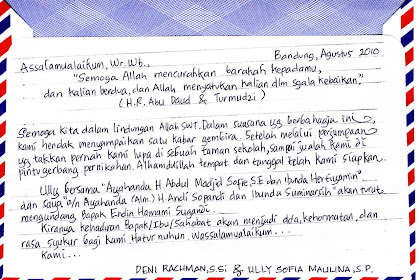 Bandung, Agustus 2010
Assalamualaikum, Wr. Wb.,
"Semoga Allah mencurahkan barakah kepadamu,
dan kalian berdua, dan Allah menyatukan kalian dlm sgala kebaikan."
(H.R. Abu Daud & Turmudzi)
Semoga kita dalam lindungan Allah SWT. Dalam suasana yg berbahagia ini,
kami hendak menyampaikan satu kabar gembira. Setelah melalui perjumpaan
yg takkan pernah kami lupa di sebuah taman sekolah, sampai jualah kami di
pintu gerbang pernikahan. Alhamdulillah tempat dan tanggal telah kami siapkan.
Ully bersama "Ayahanda H Abdul Madjid Sofie S.E dan Ibunda Hertiyamin"
dan saya "Ayahanda (Alm.) H. Andi Sopandi dan Ibunda Suminarsih" akan turut
mengundang Bapak Endin Hamami Sugandi.
Kiranya kehadiran Bapak/Ibu/Sahabat akan menjadi doa, kehormatan, dan
rasa syukur bagi kami Hatur nuhun. Wassalamualaikum...
Kami...
DENI RACHMAN, S.Si & ULLY SOFIA MAULINA, S.P.